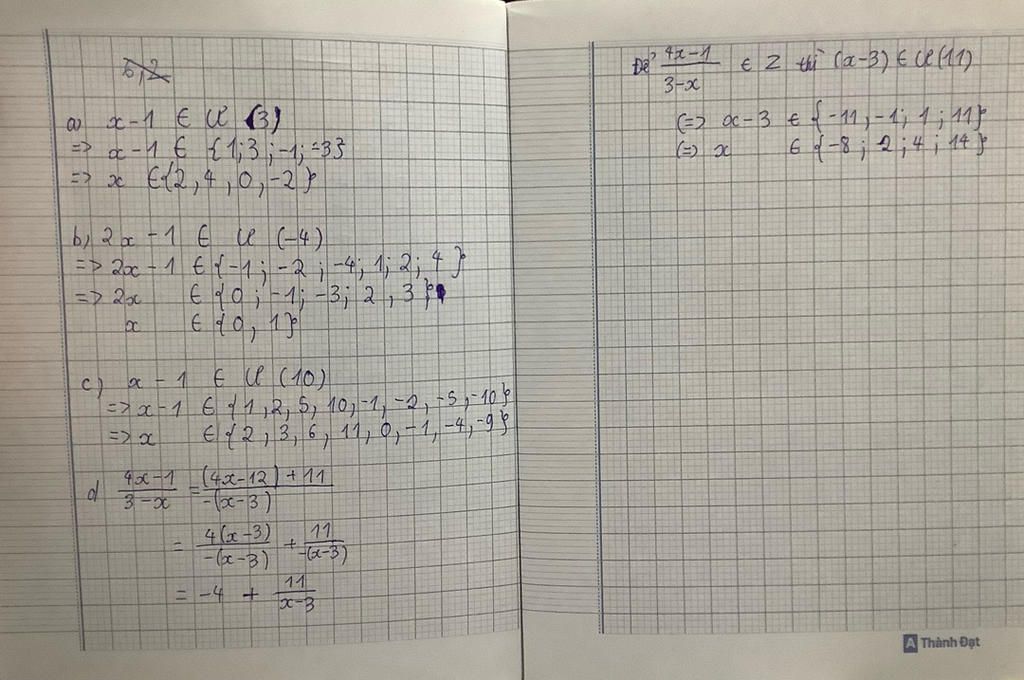 5,2
a) x-1 ∈ Ư (3)
=> x-1 ∈ {1;3;-1;-3}
=> x ∈{2,4,0,-2}
b, 2x-1 ∈ Ư (-4)
=> 2x-1 ∈{-1;-2;-4;1;2;4}
=> 2x ∈{0;-1;-3;2,3}
x ∈{0,1}
c) x-1 ∈ Ư (10)
=> x-1 ∈{1,2,5,10,-1,-2,-5,-10}
=> x ∈{2,3,6,11,0,-1,-4,-9}
d) (4x-1)/(3-x) = ((4x-12)+11)/(-(x-3))
= 4(x-3)/(-(x-3)) + 11/(-(x-3))
= -4 + 11/(x-3)
Để (4x-1)/(3-x) ∈ Z thì (x-3) ∈ Ư(11)
(=> x-3 ∈ {-11,-1;1;11}
(=) x ∈ {-8;2;4;14}
A Thành Đạt